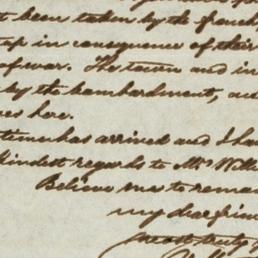 been taken by the french
up in consequence of their
of war. The town and in
by the bombardment, and
res here.
has arrived and I ha
Kindest regards to Mr Willi
Believe me to remai
my dear frien
most truly y